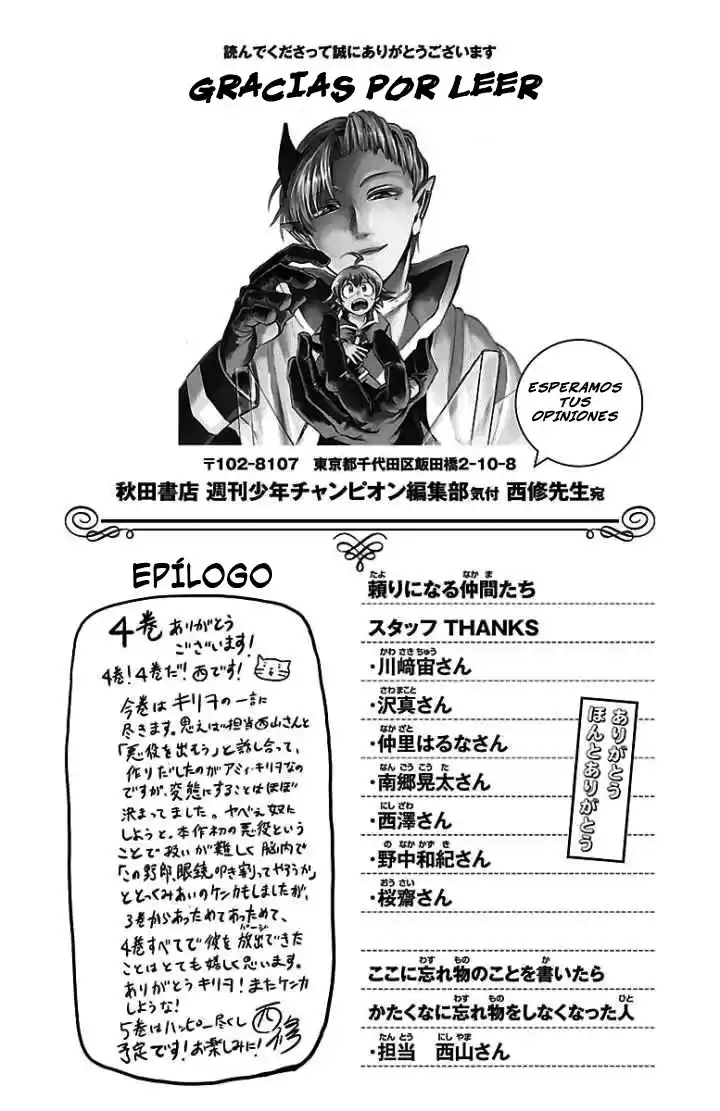 読んでくださって誠にありがとうございます
GRACIAS POR LEER
ESPERAMOS
TUS
OPINIONES
〒102-8107 東京都千代田区飯田橋2-10-8
秋田書店 週刊少年チャンピオン編集部気付 西修先生宛
EPÍLOGO
4巻 ありがとう
ございます!
4巻!4巻だ!西です!
今巻はキリヲの一言に
尽きます。思えば担当西山さんと
「悪役を出もう」と話し合って、
作りだしたのがアミィ・キリヲなの
ですが、変態にすることはほぼ
決まってました。ヤベぇ奴に
しようと。本作初の悪役という
ことで扱いが難しく脳内で
「この野郎、眼鏡叩き割ってやろうか」
ととっくみあいのケンカもしましたが、
3巻からあっためてあっためて、
4巻すべてで彼を放出できた
ことはとても嬉しく思います。
ありがとうキリヲ!またケンカ
しような!
5巻はハッピー尽くし
予定です!お楽しみに!
西修
頼りになる仲間たち
スタッフ THANKS
・川﨑宙さん
・沢真さん
・仲里はるなさん
・南郷晃太さん
・西澤さん
・野中和紀さん
・桜齋さん
ありがとう
ほんとありがとう
ここに忘れ物のことを書いたら
かたくなに忘れ物をしなくなった人
・担当 西山さん